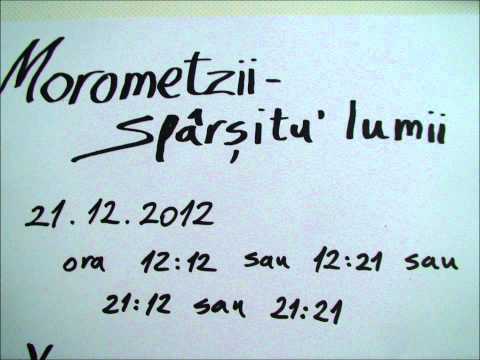 Morometzii -
Spârșitu' lumii
21.12.2012
ora 12:12 sau 12:21 sau
21:12 sau 21:21